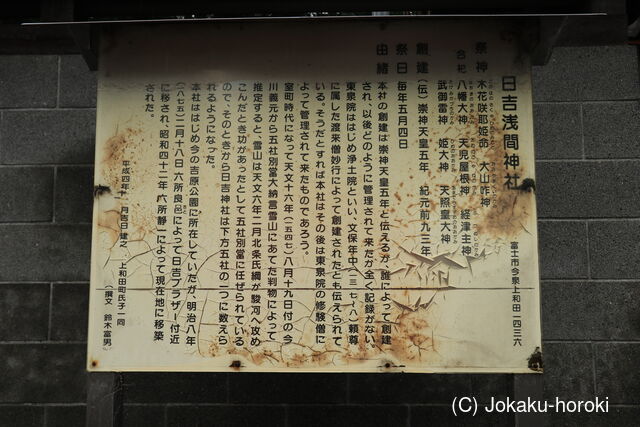 日吉浅間神社
富士市今泉上和田一四三六
祭神 木花咲耶姫命 大山咋神
合祀 八幡大神 天児屋根神 経津主神
武御雷神 姫大神 天照皇大神
創建 (伝)崇神天皇五年 紀元前九三年
祭日 毎年五月四日
由緒 本社の創建は崇神天皇五年と伝えるが、誰によって創建
され、以後どのように管理されて来たか全く記録がない。
東泉院ははじめ浄土院といい、文保年中(一三一七、八)頼尊
に属した渡来僧妙行によって創建されたとも伝えられて
いる。そうだとすれば本社はその後は東泉院の修験僧に
よって管理されて来たものであろう。
室町時代になって天文十六年(一五四七)八月十九日付の今
川義元から五社別当大納言雪山にあてた判物によって
推定すると、雪山は天文六年二月北条氏綱が駿河へ攻め
こんだとき功があったとして五社別当に任ぜられている
ので、そのときから日吉神社は下方五社の一つに数えら
れるようになった。
本社ははじめ今の吉原公園に所在していたが、明治八年
(一八七五)二月十八日六所良邑によって日吉プラザー付近
に移され、昭和四十二年六所静一によって現在地に移築
された。
平成四年 月吉日建之 上和田町氏子一同
(撰文 鈴木富男)
(C) Jokaku-horoki